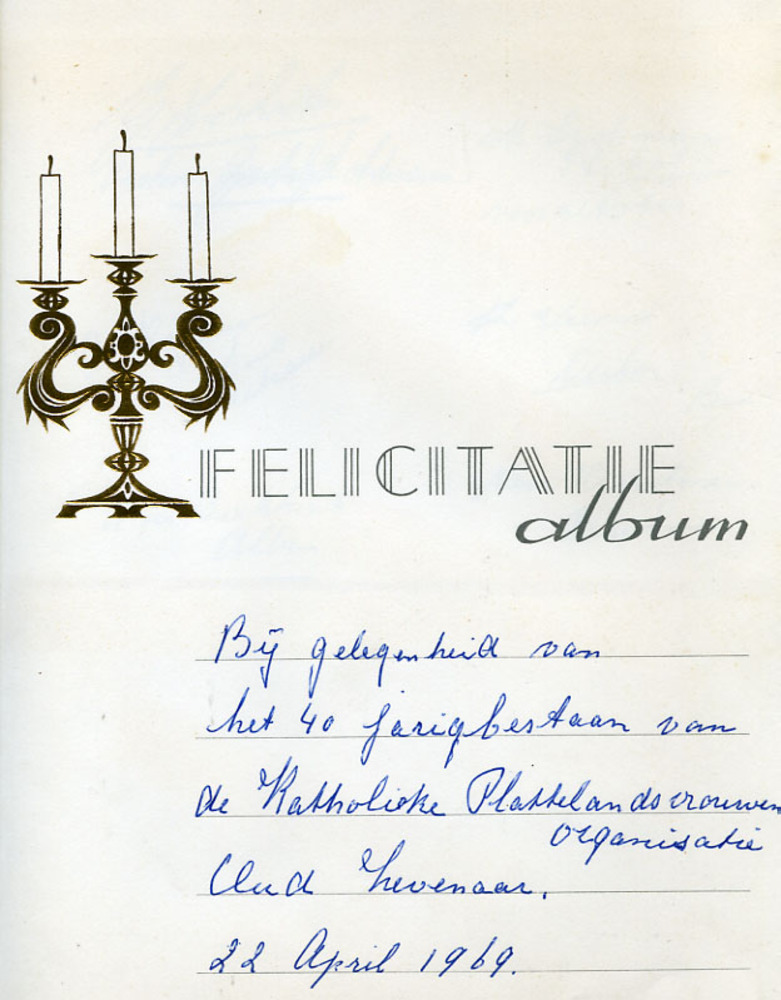 FELICITATIE
album
Bij gelegenheid van
het 40 jarigbestaan van
de Katholieke Plattelandsvrouwen
organisatie
Oud Zevenaar.
22 April 1969.